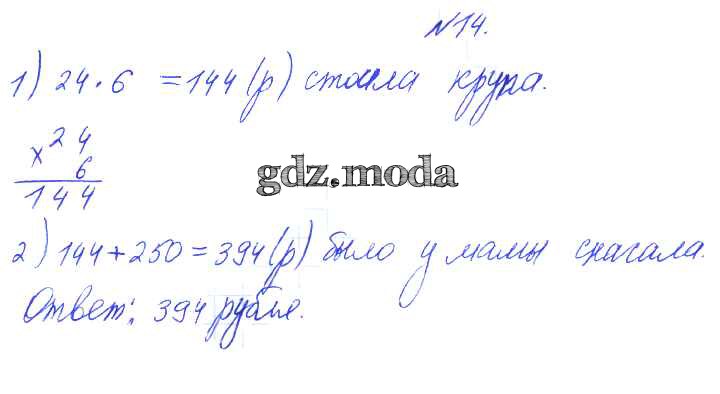 №14.
1) 24·6 =144(р) стоила крупа.
х 24
6
144
gdz.moda
2) 144+250=394(р) было у мамы сначала.
Ответ: 394 рубля.